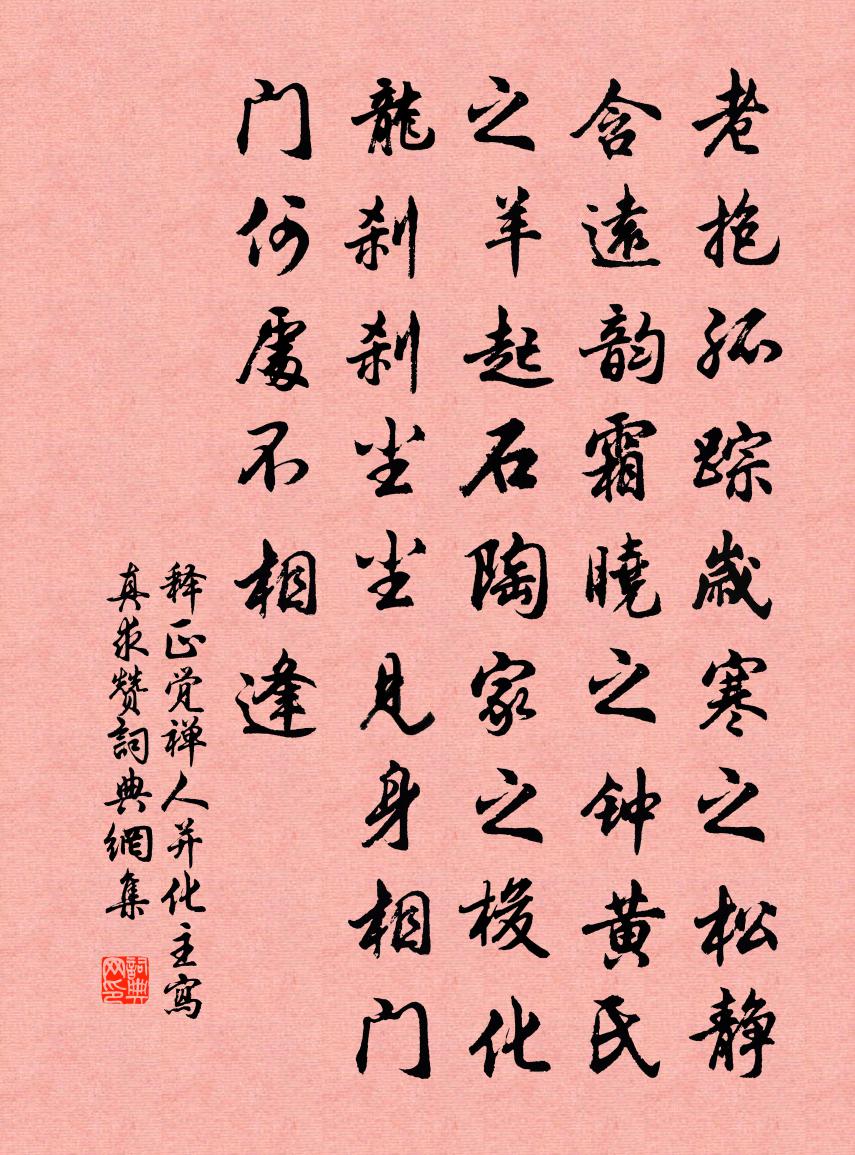 老抱孤踪歳寒之松静
含遠韵霜曉之钟黄氏
之羊起石陶家之梭化
龍刹刹尘尘見身相门
门何處不相逢
释正觉禅人并化主寫
真求赞詞典網集
詞典网印